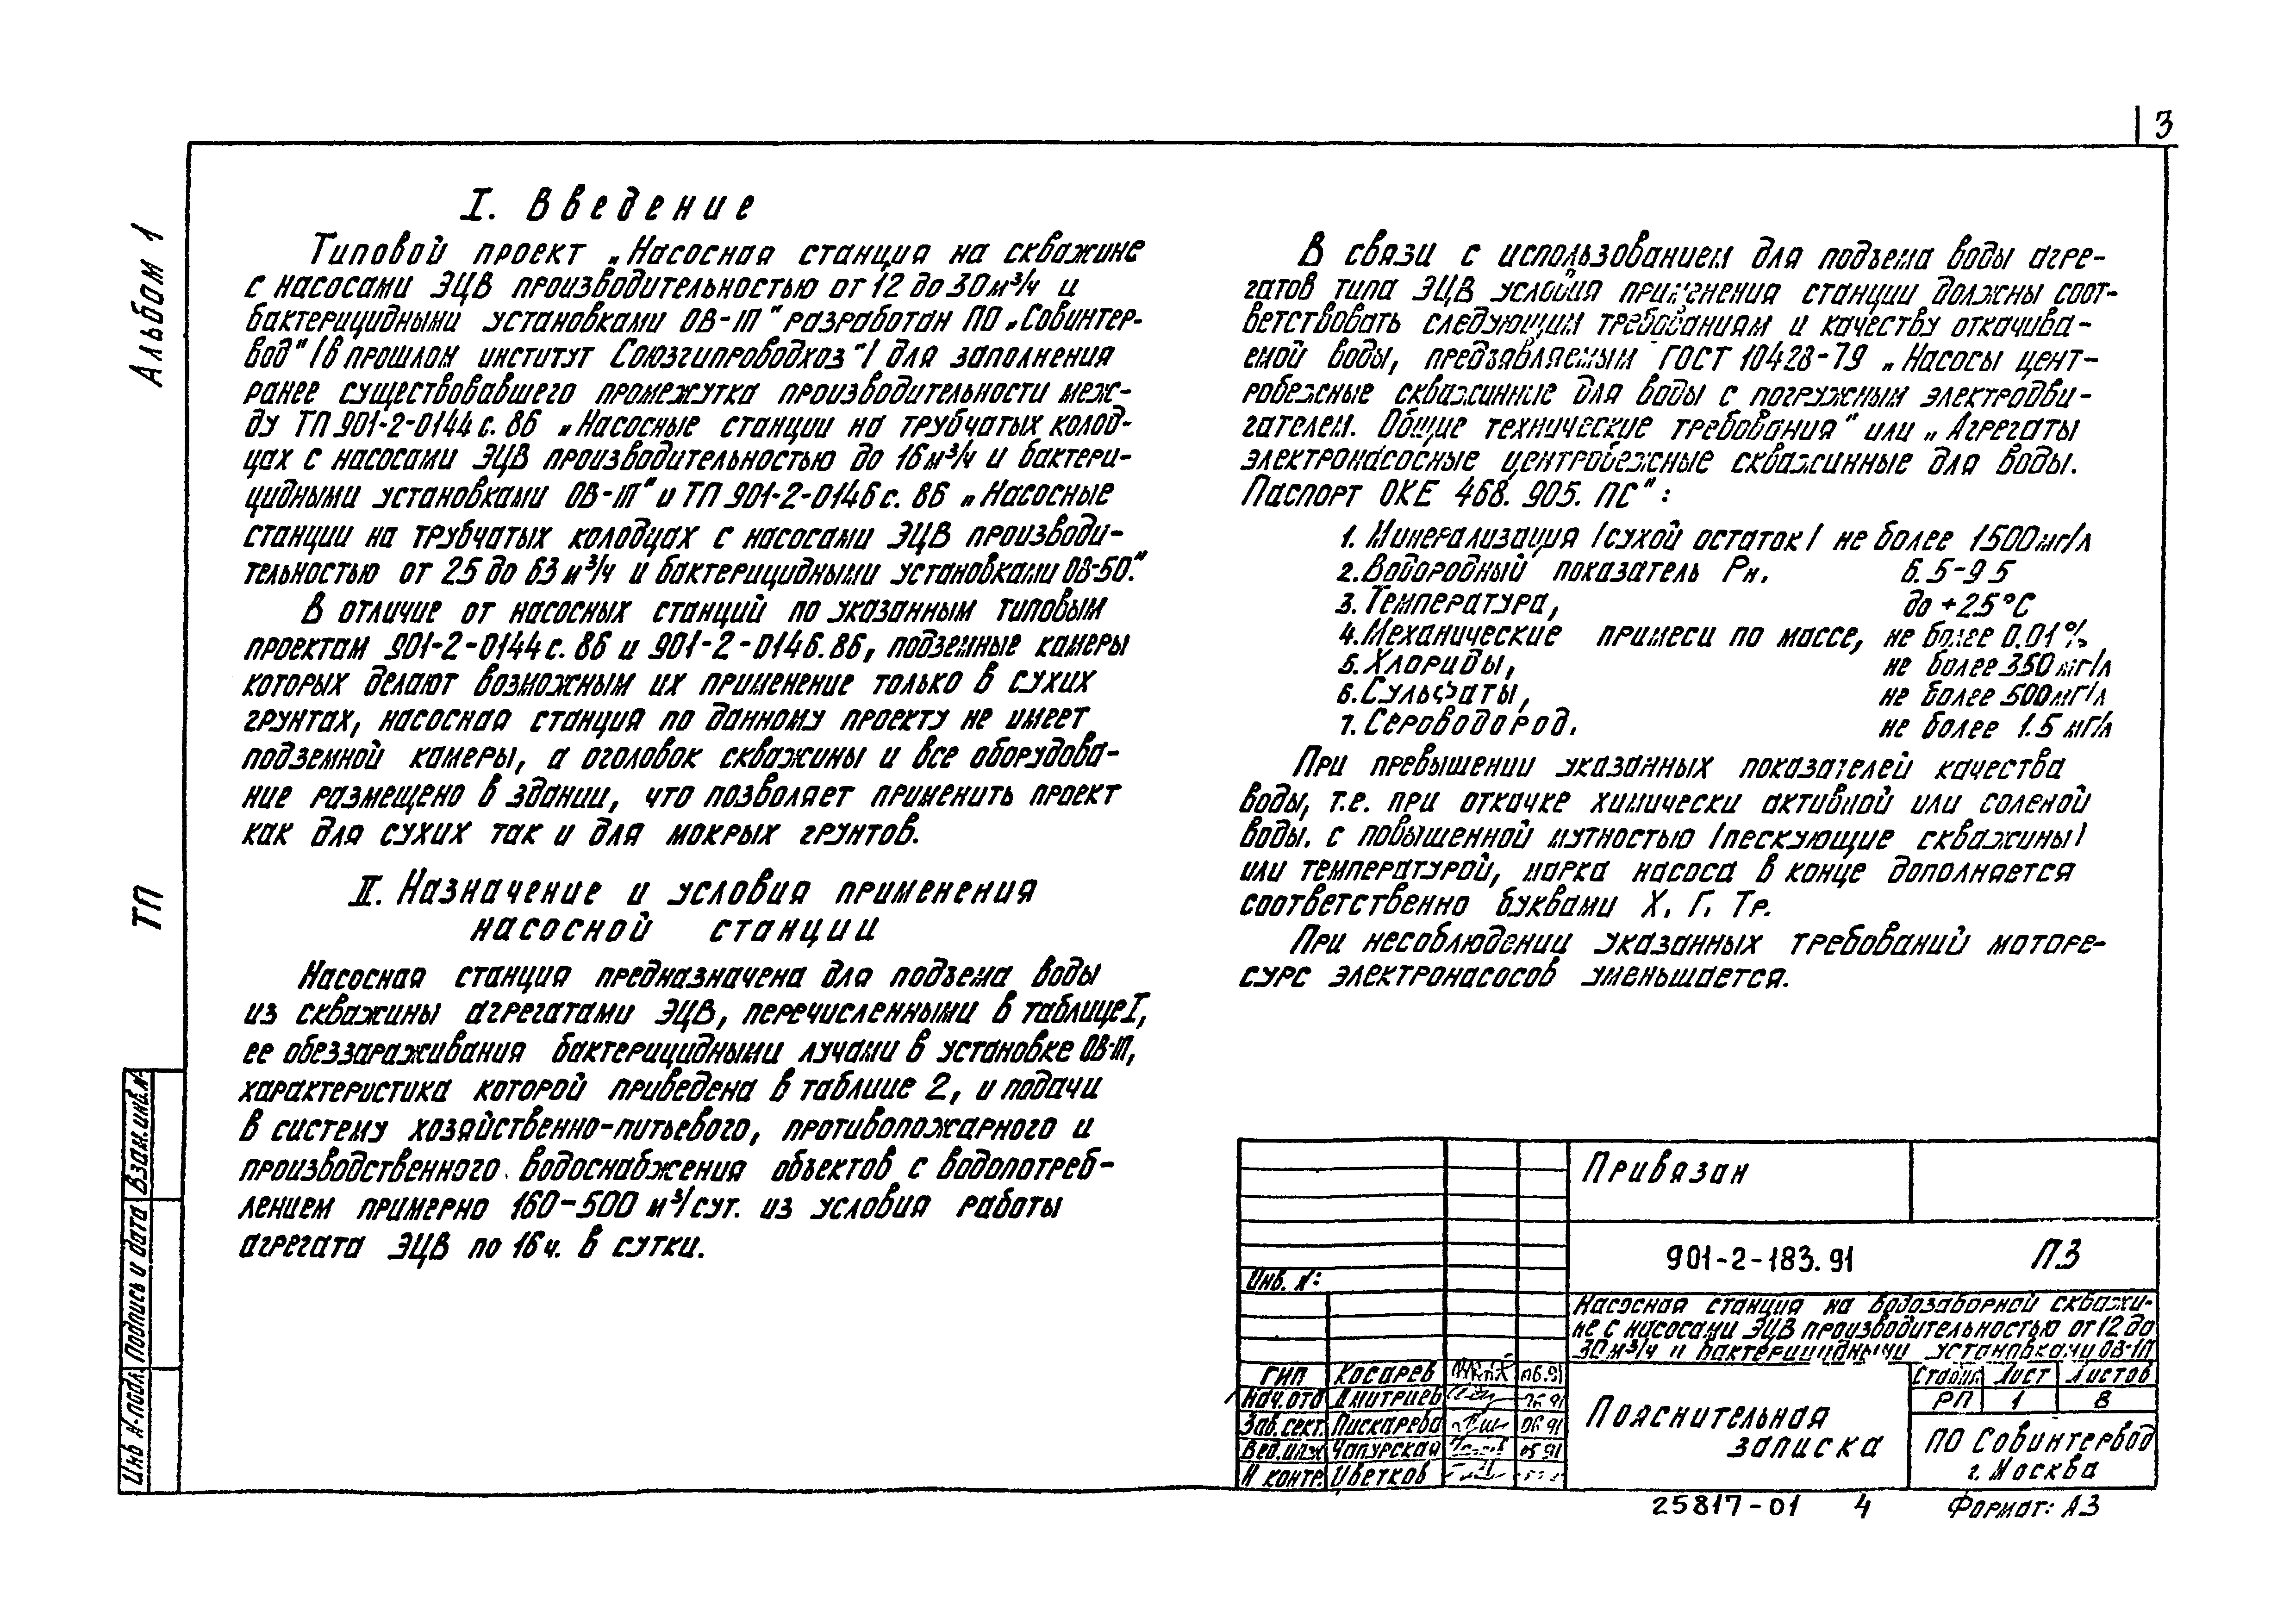 3
Альбом 1
ТП
I. Введение
Типовой проект „Насосная станция на скважине
с насосами ЭЦВ производительностью от 12 до 30 м³/ч и
бактерицидными установками ОВ-1П" разработан ПО „Совинтер-
вод" /в прошлом институт Союзгипроводхоз"/ для заполнения
ранее существовавшего промежутка производительности меж-
ду ТП 901-2-0144с.86 „Насосные станции на трубчатых колод-
цах с насосами ЭЦВ производительностью до 16 м³/ч и бактери-
цидными установками ОВ-1П" и ТП 901-2-0146с.86 „Насосные
станции на трубчатых колодцах с насосами ЭЦВ производи-
тельностью от 25 до 63 м³/ч и бактерицидными установками ОВ-50."
В отличие от насосных станций по указанным типовым
проектам 901-2-0144с.86 и 901-2-0146.86, подземные камеры
которых делают возможным их применение только в сухих
грунтах, насосная станция по данному проекту не имеет
подземной камеры, а оголовок скважины и все оборудова-
ние размещено в здании, что позволяет применить проект
как для сухих так и для мокрых грунтов.
II. Назначение и условия применения
насосной станции
Насосная станция предназначена для подъема воды
из скважины агрегатами ЭЦВ, перечисленными в таблице I,
ее обеззараживания бактерицидными лучами в установке ОВ-1П,
характеристика которой приведена в таблице 2, и подачи
в систему хозяйственно-питьевого, противопожарного и
производственного водоснабжения объектов с водопотреб-
лением примерно 160-500 м³/сут. из условия работы
агрегата ЭЦВ по 16 ч. в сутки.
В связи с использованием для подъема воды агре-
гатов типа ЭЦВ условия применения станции должны соот-
ветствовать следующим требованиям и качеству откачива-
емой воды, предъявляемым ГОСТ 10428-79 „Насосы цент-
робежные скважинные для воды с погружным электродви-
гателем. Общие технические требования" или „Агрегаты
электронасосные центробежные скважинные для воды.
Паспорт ОКЕ 468. 905. ПС":
1. Минерализация /сухой остаток/ не более 1500 мг/л
2. Водородный показатель Рн. 6.5-9 5
3. Температура, до +25°С
4. Механические примеси по массе, не более 0.01%
5. Хлориды, не более 350 мг/л
6. Сульфаты, не более 500 мг/л
7. Сероводород. не более 1.5 мг/л
При превышении указанных показателей качества
воды, т.е. при откачке химически активной или соленой
воды. с повышенной мутностью /пескующие скважины/
или температурой, марка насоса в конце дополняется
соответственно буквами Х, Г, Тр.
При несоблюдении указанных требований моторе-
сурс электронасосов уменьшается.
Взам. инв. №
Подпись и дата
Инв № подл
Привязан
Инв. №:
901-2-183.91 ПЗ
Насосная станция на водозаборной скважи-
не с насосами ЭЦВ производительностью от 12 до
30 м³/ч и бактерицидными установками ОВ-1П
ГИП Косарев 06.91
Нач.отд Дмитриев 06 91
Зав.сект. Пискарева 06 91
Вед.инж Чапурская 05 91
Н контр. Цветков
Пояснительная
записка
Стадия Лист Листов
РП 1 8
ПО Совинтервод
г. Москва
25817-01 4 Формат: А3